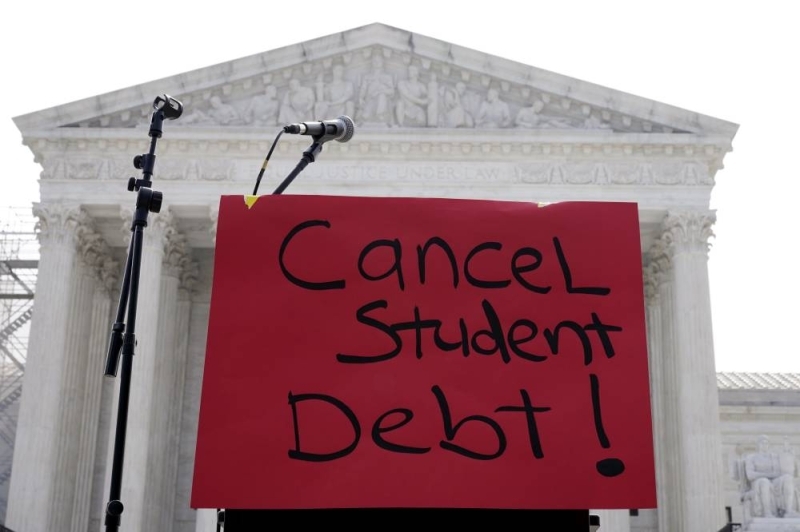 JUSTICE UNDER LAW
Cancel
Student
Debt!